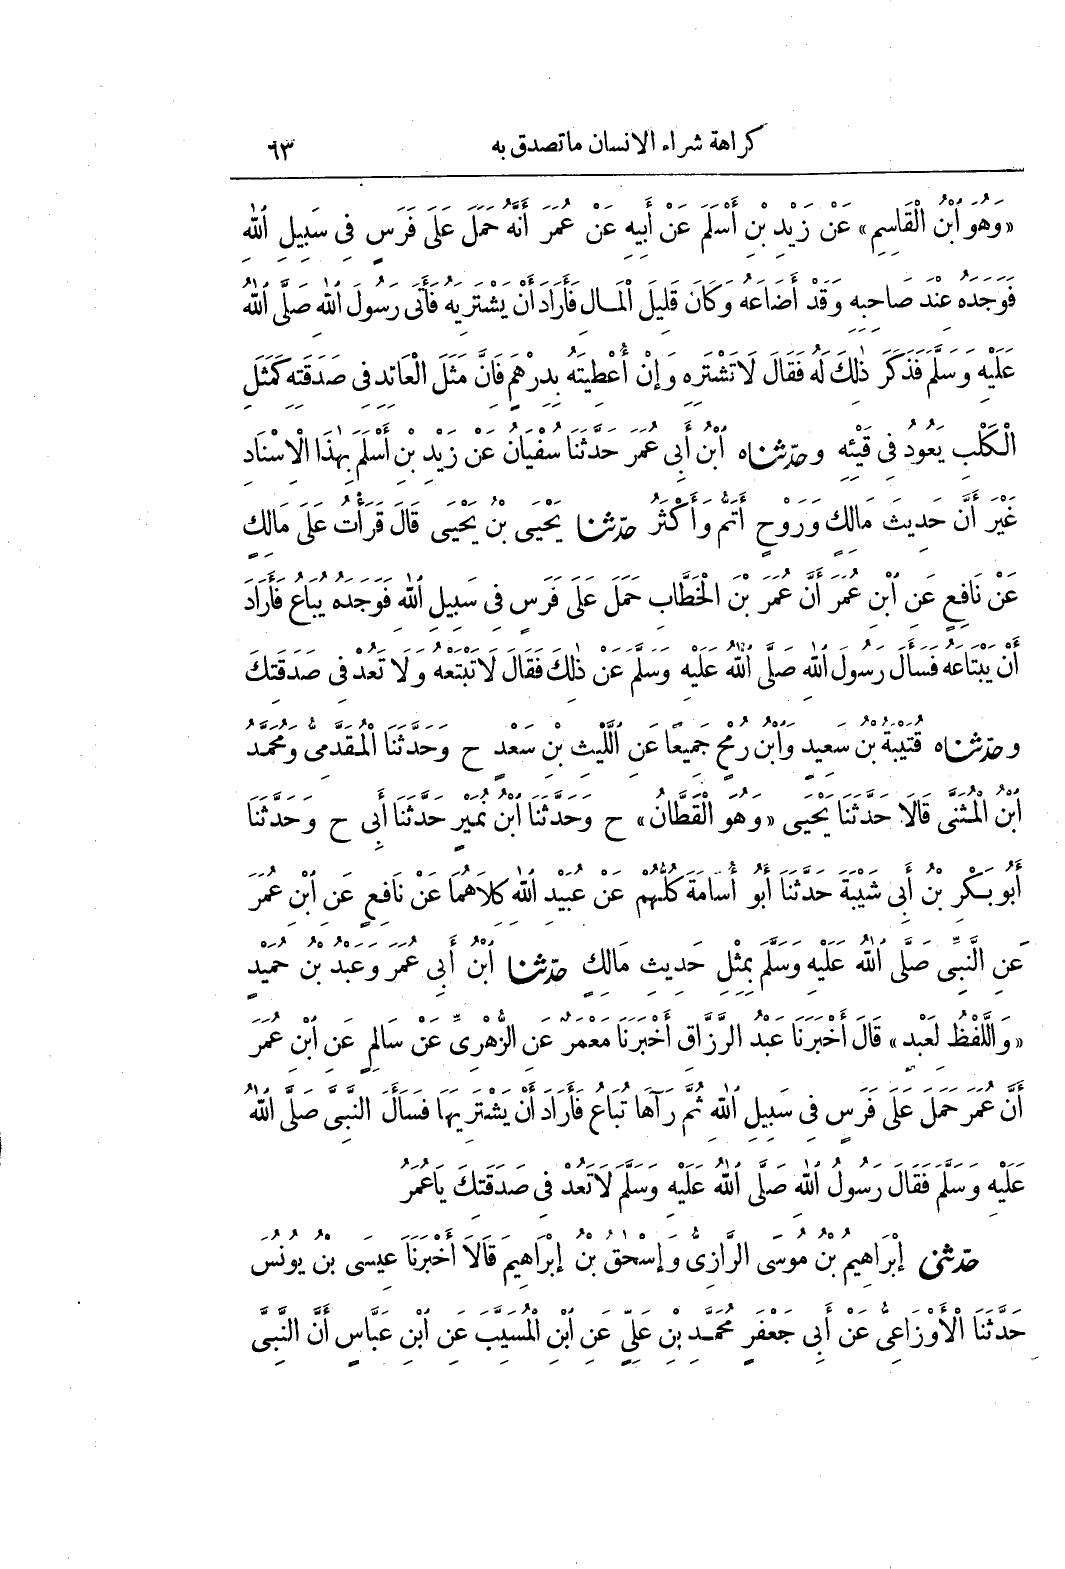 كراهة شراء الانسان ماتصدق به ٦٣
«وَهُوَ ابْنُ الْقَاسِمِ» عَنْ زَيْدِ بْنِ أَسْلَمَ عَنْ أَبِيهِ عَنْ عُمَرَ أَنَّهُ حَمَلَ عَلَى فَرَسٍ فِى سَبِيلِ اللهِ
فَوَجَدَهُ عِنْدَ صَاحِبِهِ وَقَدْ أَضَاعَهُ وَكَانَ قَلِيلَ الْمَالِ فَأَرَادَ أَنْ يَشْتَرِيَهُ فَأَتَى رَسُولَ اللهِ صَلَّى اللهُ
عَلَيْهِ وَسَلَّمَ فَذَكَرَ ذٰلِكَ لَهُ فَقَالَ لَا تَشْتَرِهِ وَإِنْ أُعْطِيتَهُ بِدِرْهَمٍ فَانَّ مَثَلَ الْعَائِدِ فِى صَدَقَتِهِ كَمَثَلِ
الْكَلْبِ يَعُودُ فِى قَيْئِهِ وحدثناه ابْنُ أَبِى عُمَرَ حَدَّثَنَا سُفْيَانُ عَنْ زَيْدِ بْنِ أَسْلَمَ بِهٰذَا الْإِسْنَادِ
غَيْرَ أَنَّ حَدِيثَ مَالِكٍ وَرَوْحٍ أَتَمُّ وَأَكْثَرُ حدثنا يَحْيَى بْنُ يَحْيَى قَالَ قَرَأْتُ عَلَى مَالِكٍ
عَنْ نَافِعٍ عَنِ ابْنِ عُمَرَ أَنَّ عُمَرَ بْنَ الْخَطَّابِ حَمَلَ عَلَى فَرَسٍ فِى سَبِيلِ اللهِ فَوَجَدَهُ يُبَاعُ فَأَرَادَ
أَنْ يَبْتَاعَهُ فَسَأَلَ رَسُولَ اللهِ صَلَّى اللهُ عَلَيْهِ وَسَلَّمَ عَنْ ذٰلِكَ فَقَالَ لَا تَبْتَعْهُ وَلَا تَعُدْ فِى صَدَقَتِكَ
وحدثناه قُتَيْبَةُ بْنُ سَعِيدٍ وَابْنُ رُمْحٍ جَمِيعًا عَنِ اللَّيْثِ بْنِ سَعْدٍ ح وَحَدَّثَنَا الْمُقَدَّمِىُّ وَمُحَمَّدُ
ابْنُ الْمُثَنَّى قَالَا حَدَّثَنَا يَحْيَى «وَهُوَ الْقَطَّانُ» ح وَحَدَّثَنَا ابْنُ نُمَيْرٍ حَدَّثَنَا أَبِى ح وَحَدَّثَنَا
أَبُو بَكْرِ بْنُ أَبِى شَيْبَةَ حَدَّثَنَا أَبُو أُسَامَةَ كُلُّهُمْ عَنْ عُبَيْدِ اللهِ كِلَاهُمَا عَنْ نَافِعٍ عَنِ ابْنِ عُمَرَ
عَنِ النَّبِىِّ صَلَّى اللهُ عَلَيْهِ وَسَلَّمَ بِمِثْلِ حَدِيثِ مَالِكٍ حدثنا ابْنُ أَبِى عُمَرَ وَعَبْدُ بْنُ حُمَيْدٍ
«وَاللَّفْظُ لِعَبْدٍ» قَالَ أَخْبَرَنَا عَبْدُ الرَّزَّاقِ أَخْبَرَنَا مَعْمَرٌ عَنِ الزُّهْرِىِّ عَنْ سَالِمٍ عَنِ ابْنِ عُمَرَ
أَنَّ عُمَرَ حَمَلَ عَلَى فَرَسٍ فِى سَبِيلِ اللهِ ثُمَّ رَآهَا تُبَاعُ فَأَرَادَ أَنْ يَشْتَرِيَهَا فَسَأَلَ النَّبِىَّ صَلَّى اللهُ
عَلَيْهِ وَسَلَّمَ فَقَالَ رَسُولُ اللهِ صَلَّى اللهُ عَلَيْهِ وَسَلَّمَ لَا تَعُدْ فِى صَدَقَتِكَ يَا عُمَرُ
حدثنى إِبْرَاهِيمُ بْنُ مُوسَى الرَّازِىُّ وَإِسْحٰقُ بْنُ إِبْرَاهِيمَ قَالَا أَخْبَرَنَا عِيسَى بْنُ يُونُسَ
حَدَّثَنَا الْأَوْزَاعِىُّ عَنْ أَبِى جَعْفَرٍ مُحَمَّدِ بْنِ عَلِىٍّ عَنِ ابْنِ الْمُسَيَّبِ عَنِ ابْنِ عَبَّاسٍ أَنَّ النَّبِىَّ